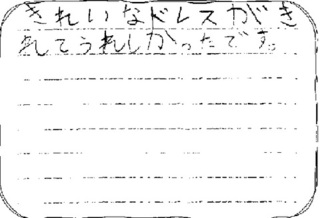 きれいなドレスがき
れてうれしかったです。